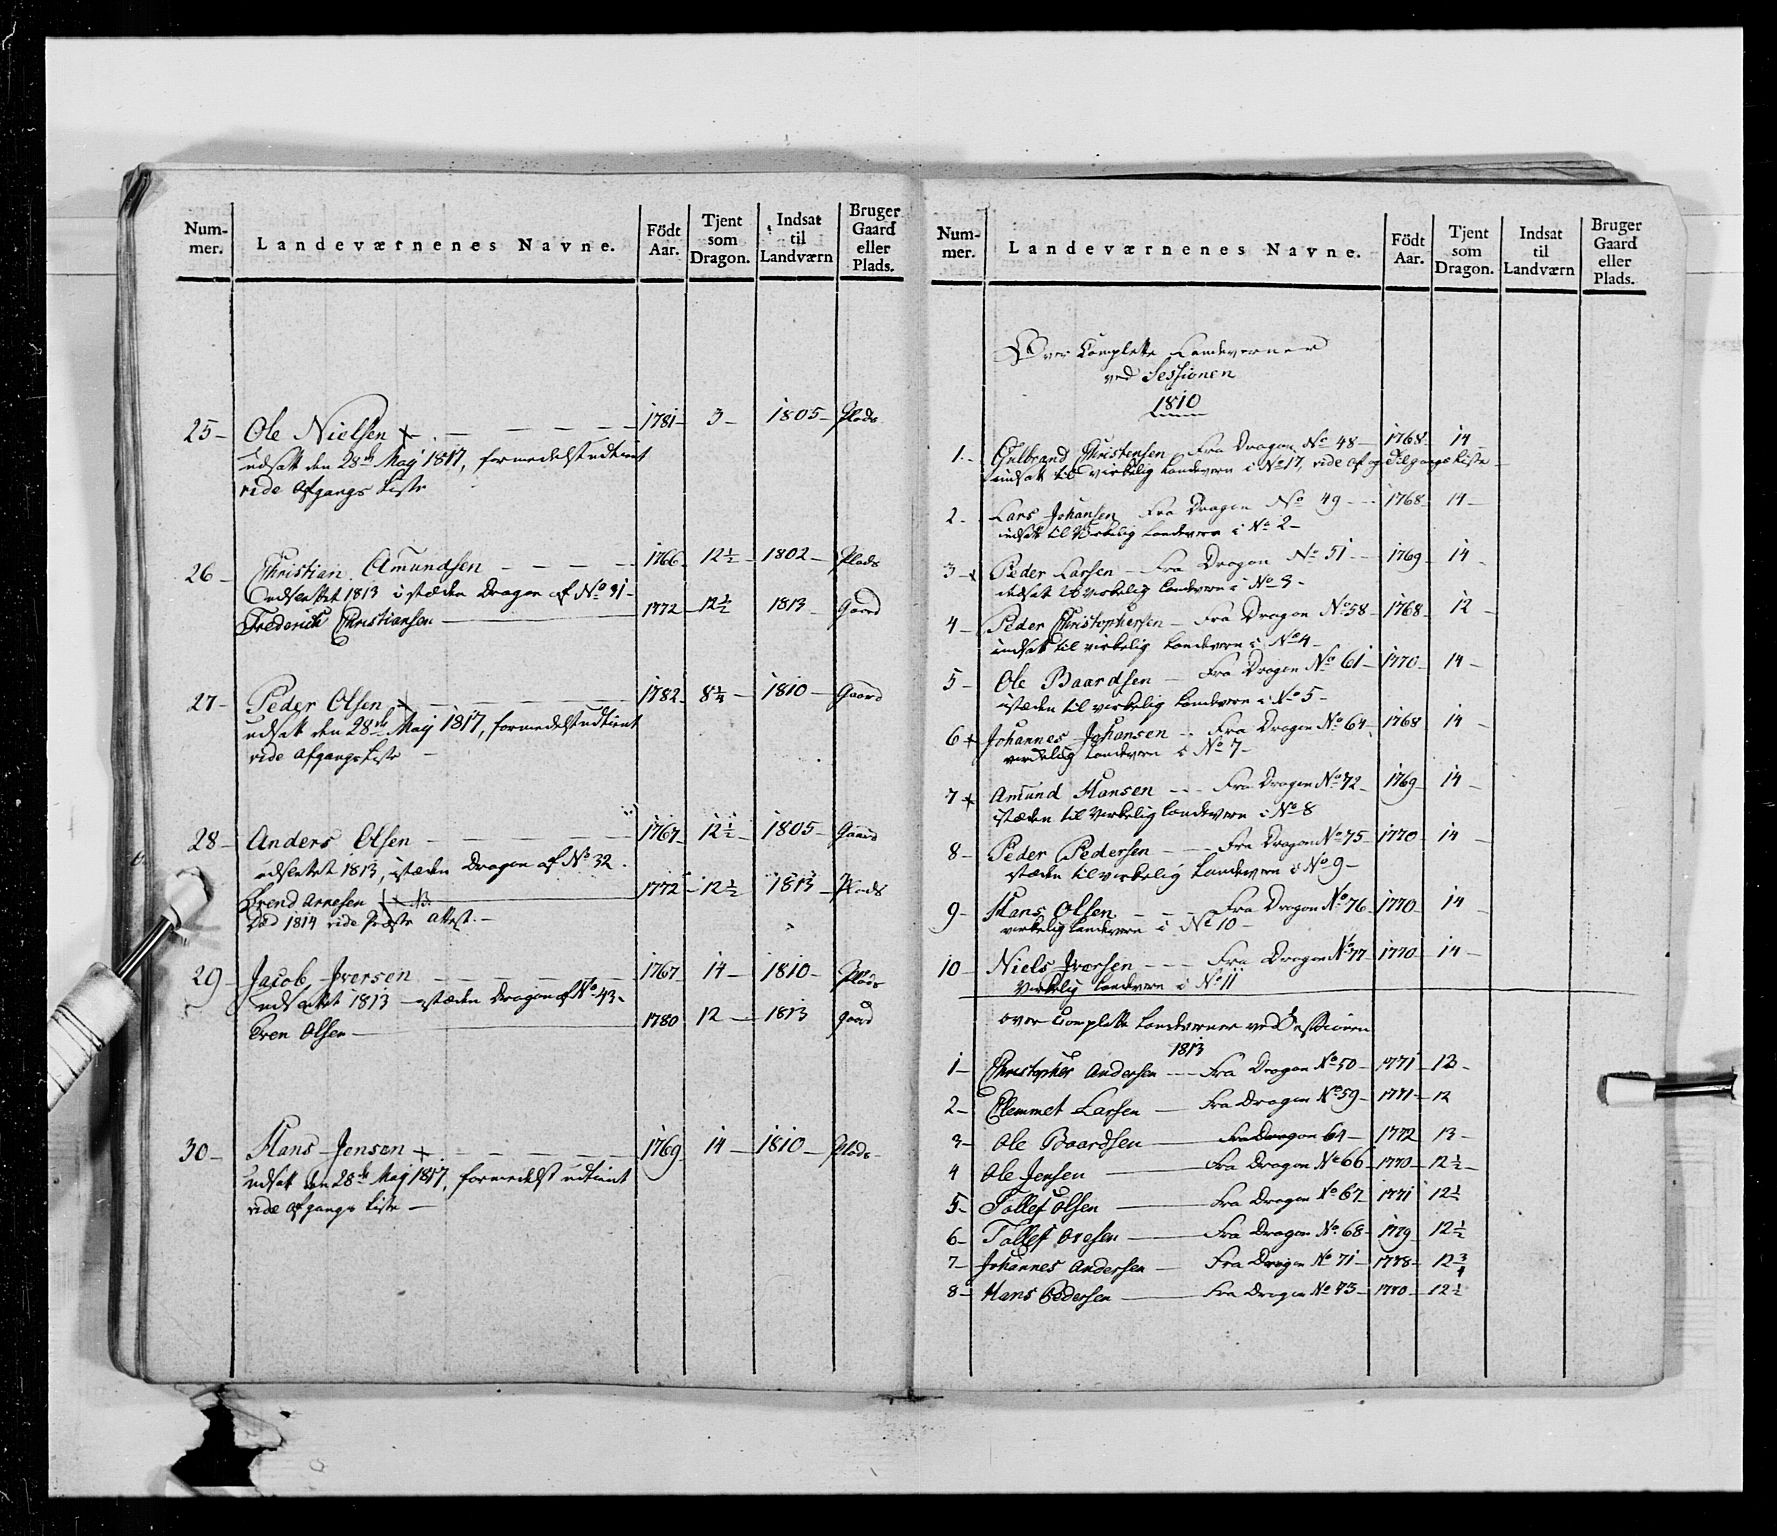 Num-mer. Landeværnenes Navne. Födt Aar. Tjent som Dragon. Indsat til Landværn Bruger Gaard eller Plads.
25 – Ole Nielsen – 1781 – 3 – 1805 – Plads
udsatt den 28de Maij 1817, formedelst udtient
vide Afgangs Liste
26 – Christian Amundsen – 1766 12½ – 1802 – Plads
udslettet 1813 i stæden Dragon af No 31 –
Frederich Christiansen – 1772 – 12½ 1813 – Gaard
27 – Peder Olsen – 1782 – 8¼ – 1810 – Gaard
udsatt den 28de Maij 1817, formedelst udtient
vide Afgangs Liste –
28 – Anders Olsen – 1767 – 12½ – 1805 – Gaard
udslettet 1813, istæden Dragon af No 32
Svend Arnesen – 1772 – 12½ – 1813 – Plads
Død 1814 vide Præste Attest –
29 – Jacob Iversen – 1767 – 14 – 1810 – Plads
udslettet 1813 – istæden Dragon af No 43 –
Even Olsen – 1780 12 – 1813 gaard
30 – Hans Jensen – 1769 – 14 – 1810 – Plads
udsatt den 28de Maij 1817, formedelst udtient
vide Afgangs Liste –
Num-mer. Landeværnenes Navne. Födt Aar. Tjent som Dragon. Indsat til Landværn Bruger Gaard eller Plads.
Over Complette Landeverner
ved Sessionen
1810
1 – Gulbrand Christensen Fra Dragon No 48 – 1768 – 14 –
indsatt til virkelig Landevern i No 17, vide Af og Tilgangs Liste –
2 – Lars Johansen Fra Dragon No 49 – 1768 – 14 –
indsatt til Virkelig Landevern i No 2 –
3 – Peder Larsen – Fra Dragon No 51 – 1769 – 14 –
indsat virkelig Landevern i No 3 –
4 – Peder Christophersen – Fra Dragon No 58 – 1768 – 12 –
indsatt til virkelig Landevern i No 4 –
5 – Ole Baardsen – Fra Dragon No 61 – 1770 – 14 –
istæden til virkelig Landevern i No 5 –
6 Johannes Johansen – Fra Dragon No 64 – 1768 14 –
virkelig Landevern i No 7 –
7 Amund Hansen – Fra Dragon No 72 – 1769 – 14 –
istæden til Virkelig Landevern i No 8
8 – Peder Pedersen – Fra Dragon No 75 – 1770 – 14 –
stæden til virkelig Landevern i No 9 –
9 – Hans Olsen – Fra Dragon No 76 – 1770 – 14 –
virkelig Landevern i No 10 –
10 – Niels Iversen – Fra Dragon No 77 – 1770 – 14 –
Virkelig Landevern i No 11
over Complette Landeverner ved Sessionen
1813
1 – Christopher Andersen – Fra Dragon No 50 – 1771 – 13 –
2 – Clemmet Larsen – Fra Dragon No 59 – 1771 – 12
3 – Ole Baardsen – Fra Dragon 64 – 1772 13 –
4 Ole Jensen – Fra Dragon No 66 – 1770 – 12½ –
5 – Tollef Olsen – Fra Dragon No 67 – 1771 12½
6 – Tollef – Fra Dragon No 68 – 1779 – 12½
7 – Johannes Andersen – Fra Dragon No 71 – 1778 – 12¾
8 – Hans Pedersen – Fra Dragon No 73 – 1770 – 12½